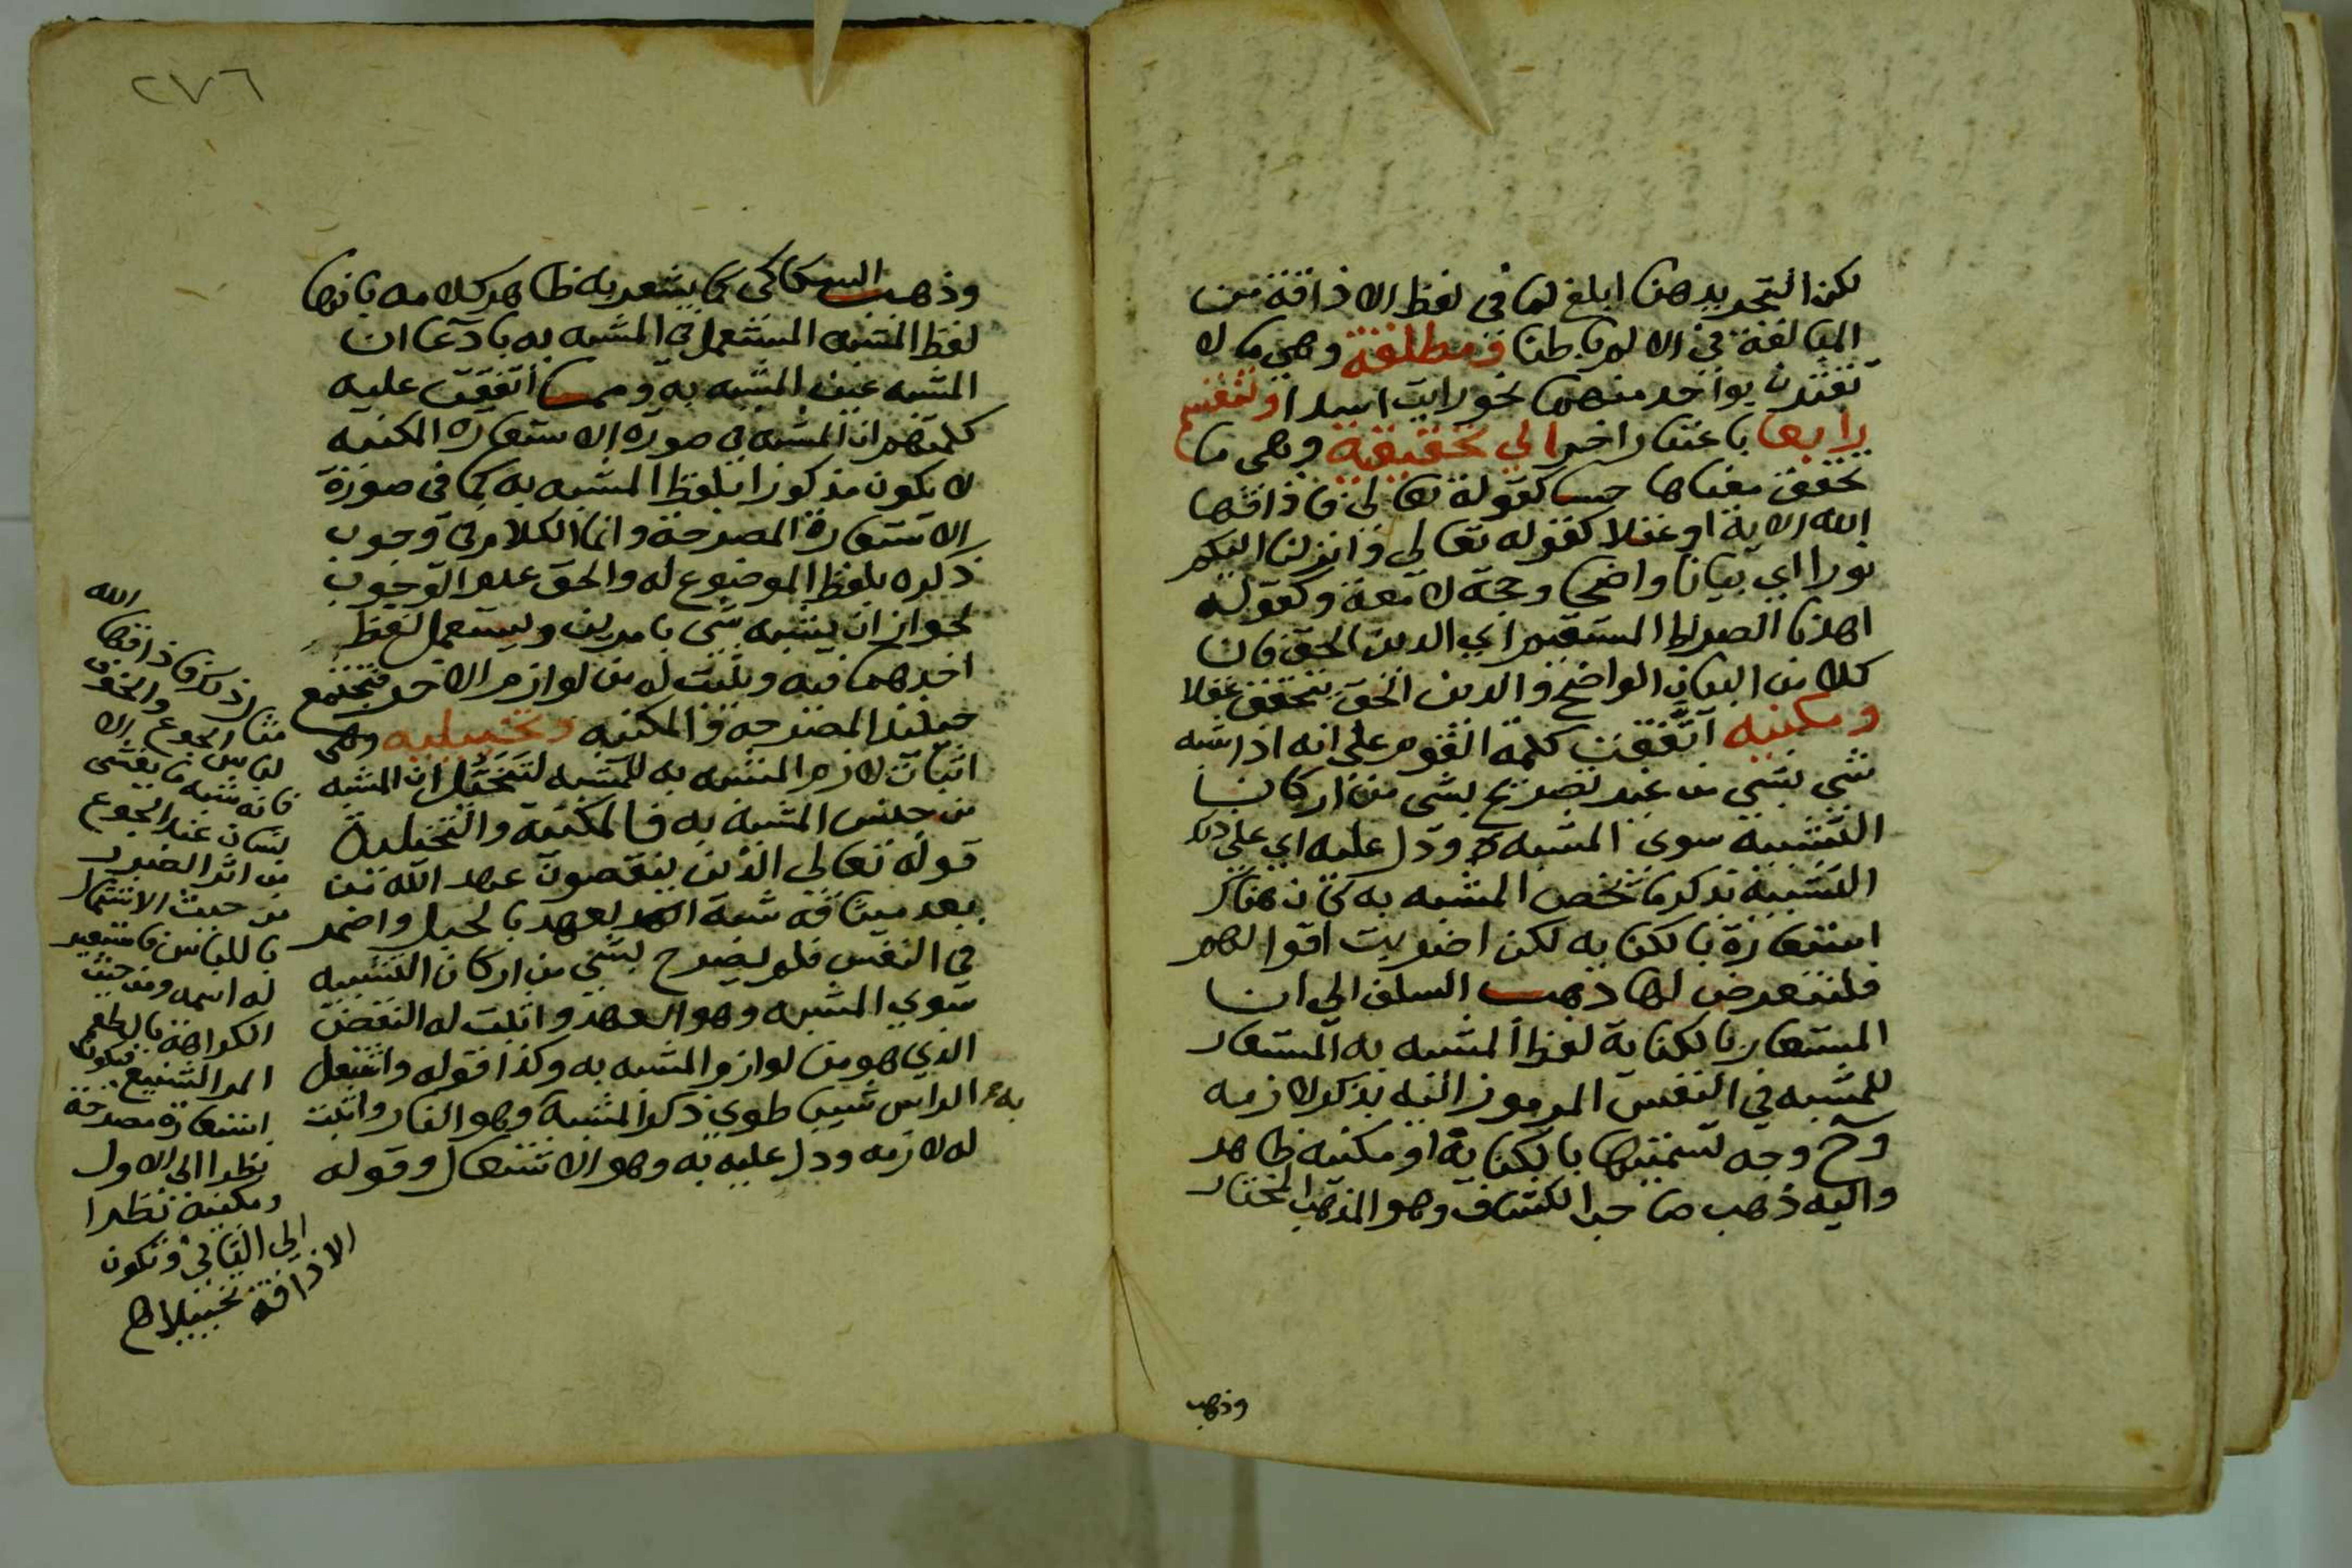 لكن التجريد هنا ابلغ لما في لفظ الاذاقة من
المبالغة في الالم باطنا ومطلقة وهي ما لا
تقترن بواحد منهما نحو رايت اسدا وتنقسم
رابعا باعتبار اخر الي تحقيقية وهي ما
تحقق معناها حسا كقوله تعالى فاذاقها
الله الاية او عقلا كقوله تعالى وانزلنا اليكم
نورا اي بيانا واضحا وحجة لامعة وكقوله
اهدنا الصراط المستقيم اي الدين الحق فان
كلا من البيان الواضح والدين الحق يتحقق عقلا
ومكنيه اتفقت كلمة القوم على انه اذا شبه
شي بشي من غير تصريح بشي من اركان
التشبيه سوى المشبه ودل عليه اي على ذلك
التشبيه بذكر ما يخص المشبه به كان هناك
استعارة بالكنايه لكن اضربت اقوالهم
فلنتعرض لها ذهب السلف الى ان
المستعار بالكناية لفظ المشبه به المستعار
للمشبه في النفس المرموز اليه بذكر لازمه
وح وجه تسميتها بالكناية او مكنيه ظاهر
واليه ذهب صاحب الكشاف وهو المذهب المختار
وذهب
٢٧٦
وذهب السكاكي كما يشعر به ظاهر كلامه بانها
لفظ المشبه المستعمل في المشبه به بادعا ان
المشبه عين المشبه به ومما اتفقت عليه
كلمتهم ان المشبه في صورة الاستعارة المكنيه
لا يكون مذكورا بلفظ المشبه به كما في صورة
الاستعارة المصرحة وانما الكلام في وجوب
ذكره بلفظ الموضوع له والحق عدم الوجوب
لجواز ان يشبه شي بامرين ويستعمل لفظ
احدهما فيه ويثبت له من لوازم الاخر فتجتمع
حينئذ المصرحه والمكنيه وتخييليه وهي
اثبات لازم المشبه به للمشبه لتخيل ان المشبه
من جنس المشبه به فالمكنية والتخيلية
قوله تعالى الذين ينقضون عهد الله من
بعد ميثاقه شبه العهد بالحبل واضمر
في النفس فلم يصرح بشي من اركان التشبيه
سوي المشبه وهو العهد واثبت له النقض
الذي هو من لوازم المشبه به وكذا قوله واشتعل
الراس شيبا طوي ذكر المشبه به وهو النار واثبت
له لازمه ودل عليه به وهو الاشتعال وقوله
الله
مثال ذلك فاذاقها
لباس الجوع والخوف
فانه شبه ما يغشى الا
نسان عند الجوع
من اثر الضرر
من حيث الاشتمال
باللباس فاستعير
له اسمه ومن حيث
الكراهة بالطعم
المر الشنيع فيكون
استعارة مصرحة
نظرا الى الاول
ومكنية نظرا
الى الثاني وتكون
الاذاقة تخييلا اه